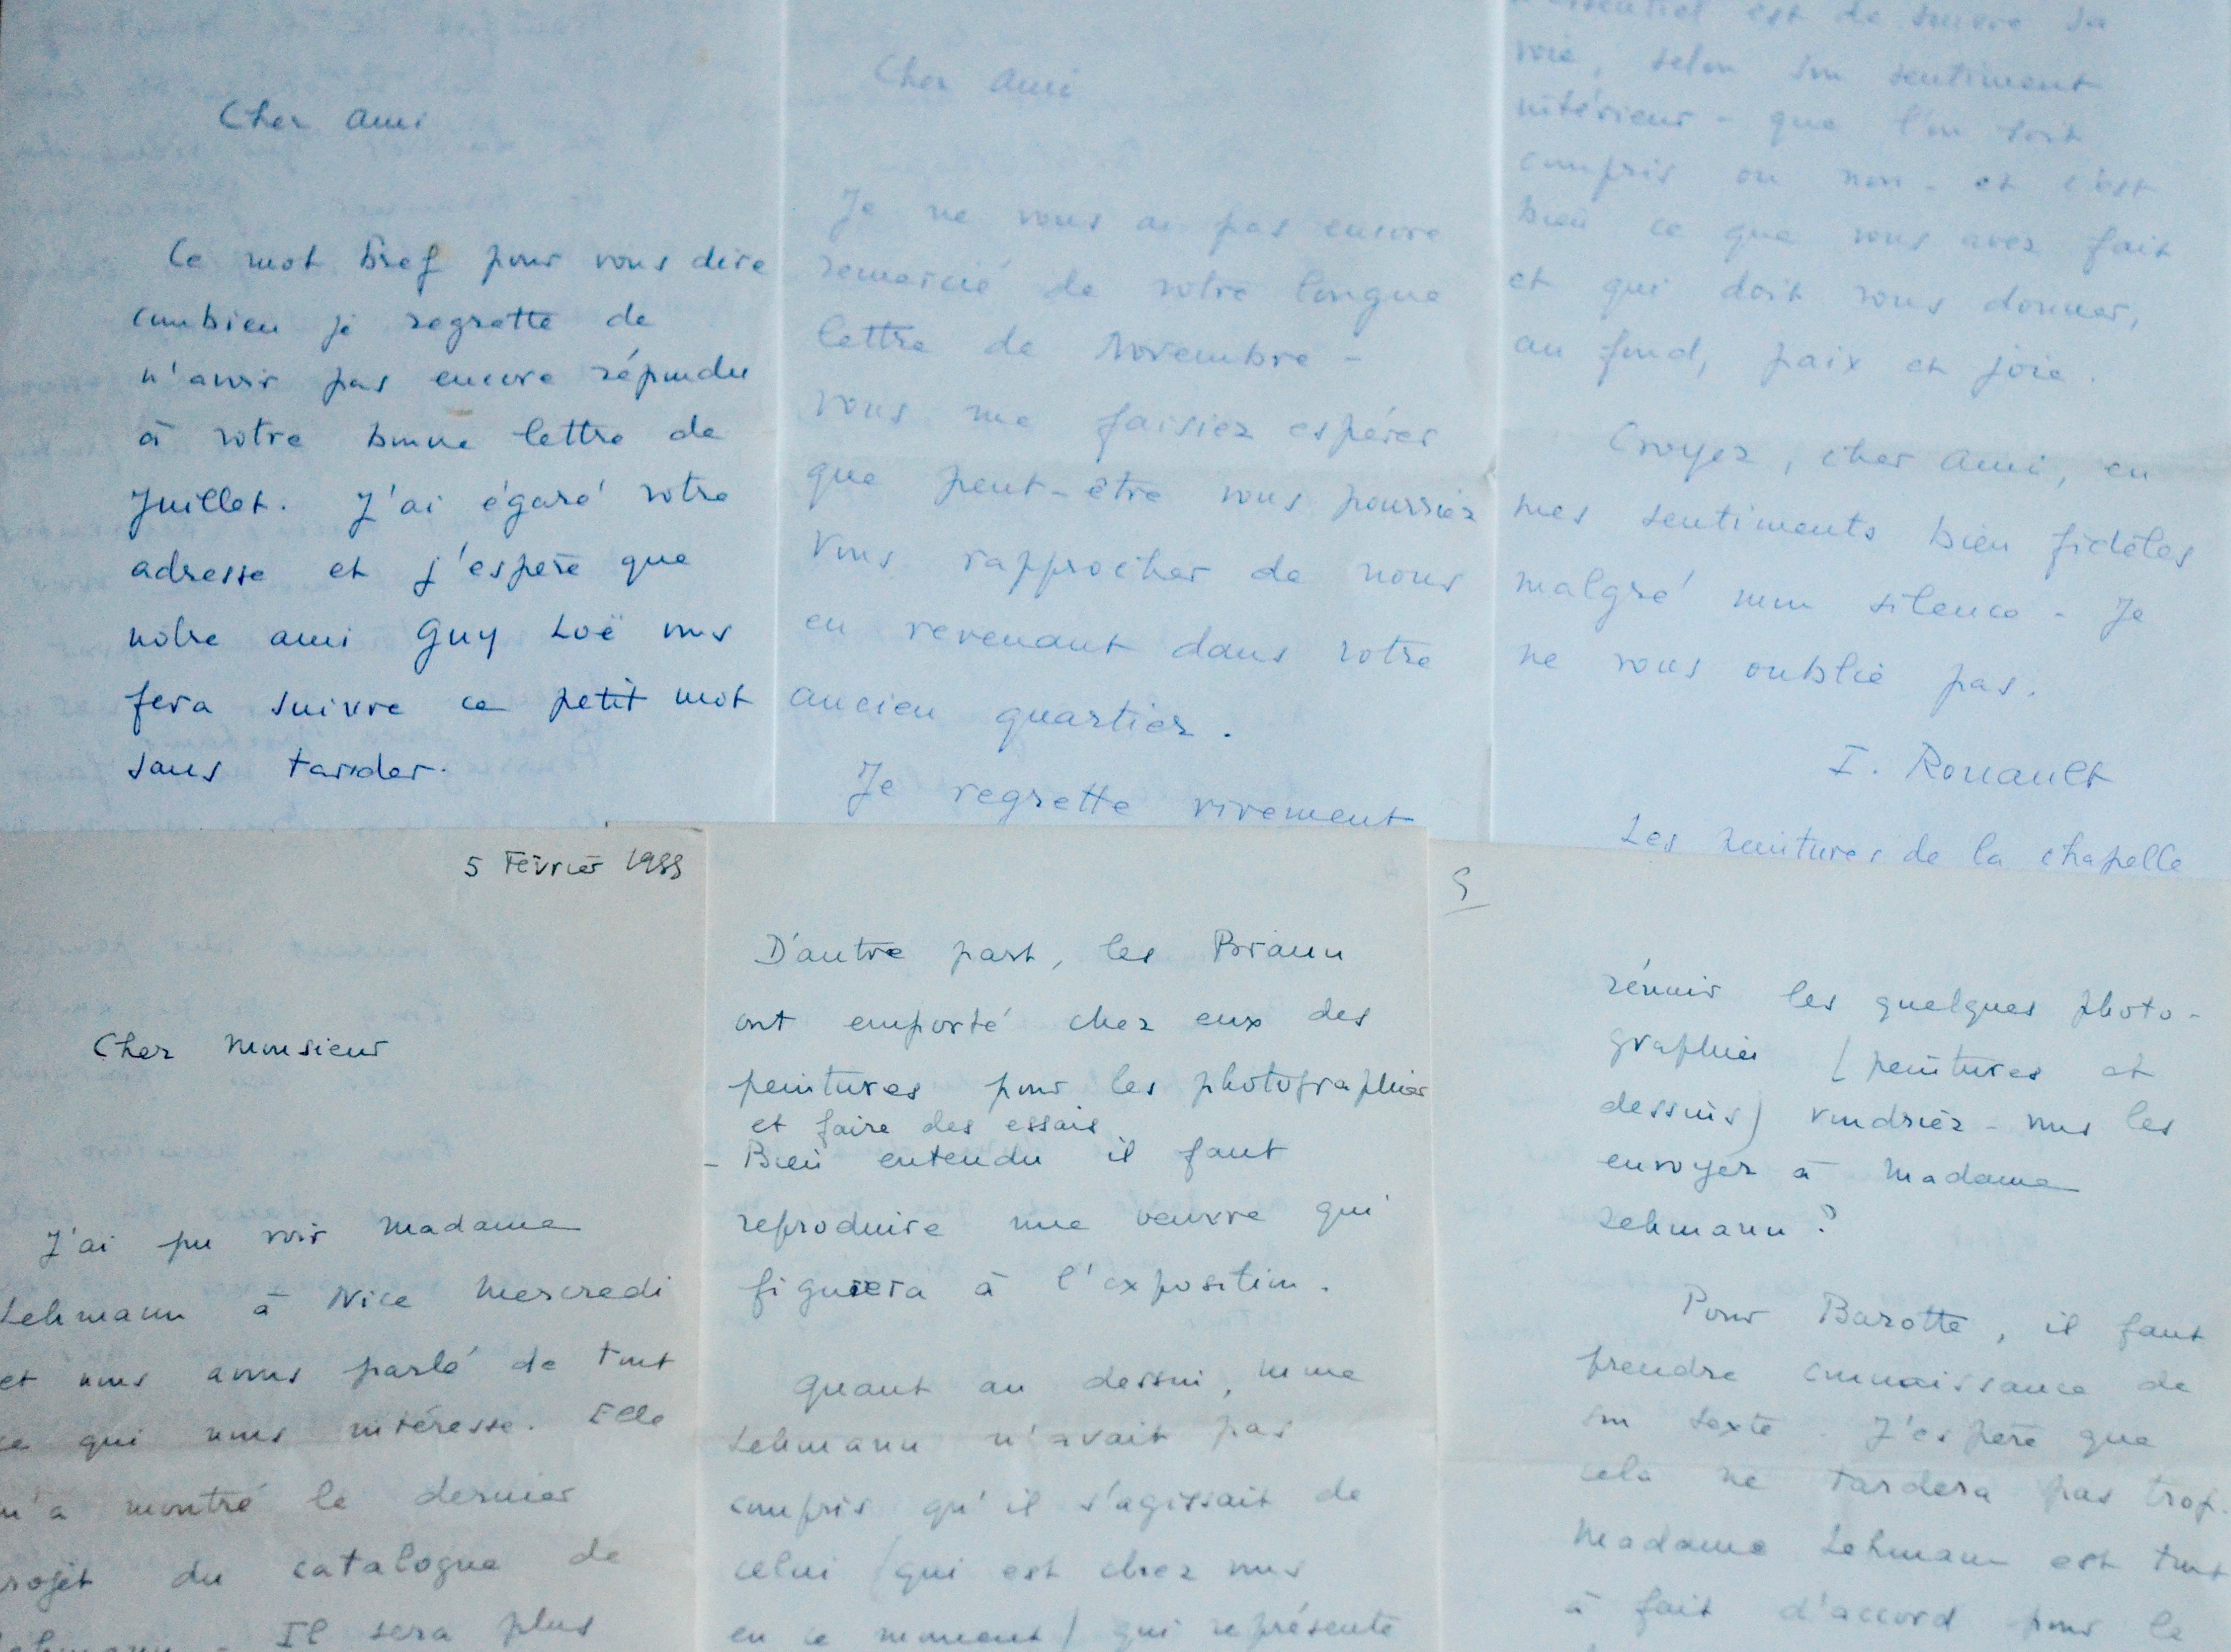 Cher ami
Ce mot bref pour vous dire
combien je regrette de
n'avoir pas encore répondu
à votre bonne lettre de
Juillet. J'ai égaré votre
adresse et j'espère que
notre ami Guy Loë vous
fera suivre ce petit mot
sans tarder.
Cher ami
Je ne vous ai pas encore
remercié de votre longue
lettre de Novembre -
vous me faisiez espérer
que peut-être vous pourriez
vous rapprocher de nous
en revenant dans votre
ancien quartier.
Je regrette vivement
est de suivre sa
voie, selon son sentiment
intérieur - que l'on soit
compris ou non - et c'est
bien ce que vous avez fait
et qui doit vous donner,
au fond, paix et joie.
Croyez, cher ami, en
mes sentiments bien fidèles
malgré mon silence - Je
ne vous oublie pas.
I. Rouault
Les peintures de la chapelle
5 Février
Cher Monsieur
J'ai pu voir Madame
Lehmann à Nice Mercredi
et nous avons parlé de tout
ce qui nous intéresse. Elle
m'a montré le dernier
projet du catalogue de
Lehmann - Il sera plus
D'autre part, les Braun
ont emporté chez eux des
peintures pour les photographier
et faire des essais
- Bien entendu il faut
reproduire une oeuvre qui
figurera à l'exposition.
Quant au dessin, Mme
Lehmann n'avait pas
compris qu'il s'agissait de
celui (qui est chez nous
en ce moment) qui représente
réunir les quelques photo-
graphies (peintures et
dessins) voudriez-vous les
envoyer à Madame
Lehmann ?
Pour Barotte, il faut
prendre connaissance de
son texte J'espère que
cela ne tardera pas trop.
Madame Lehmann est tout
à fait d'accord pour le